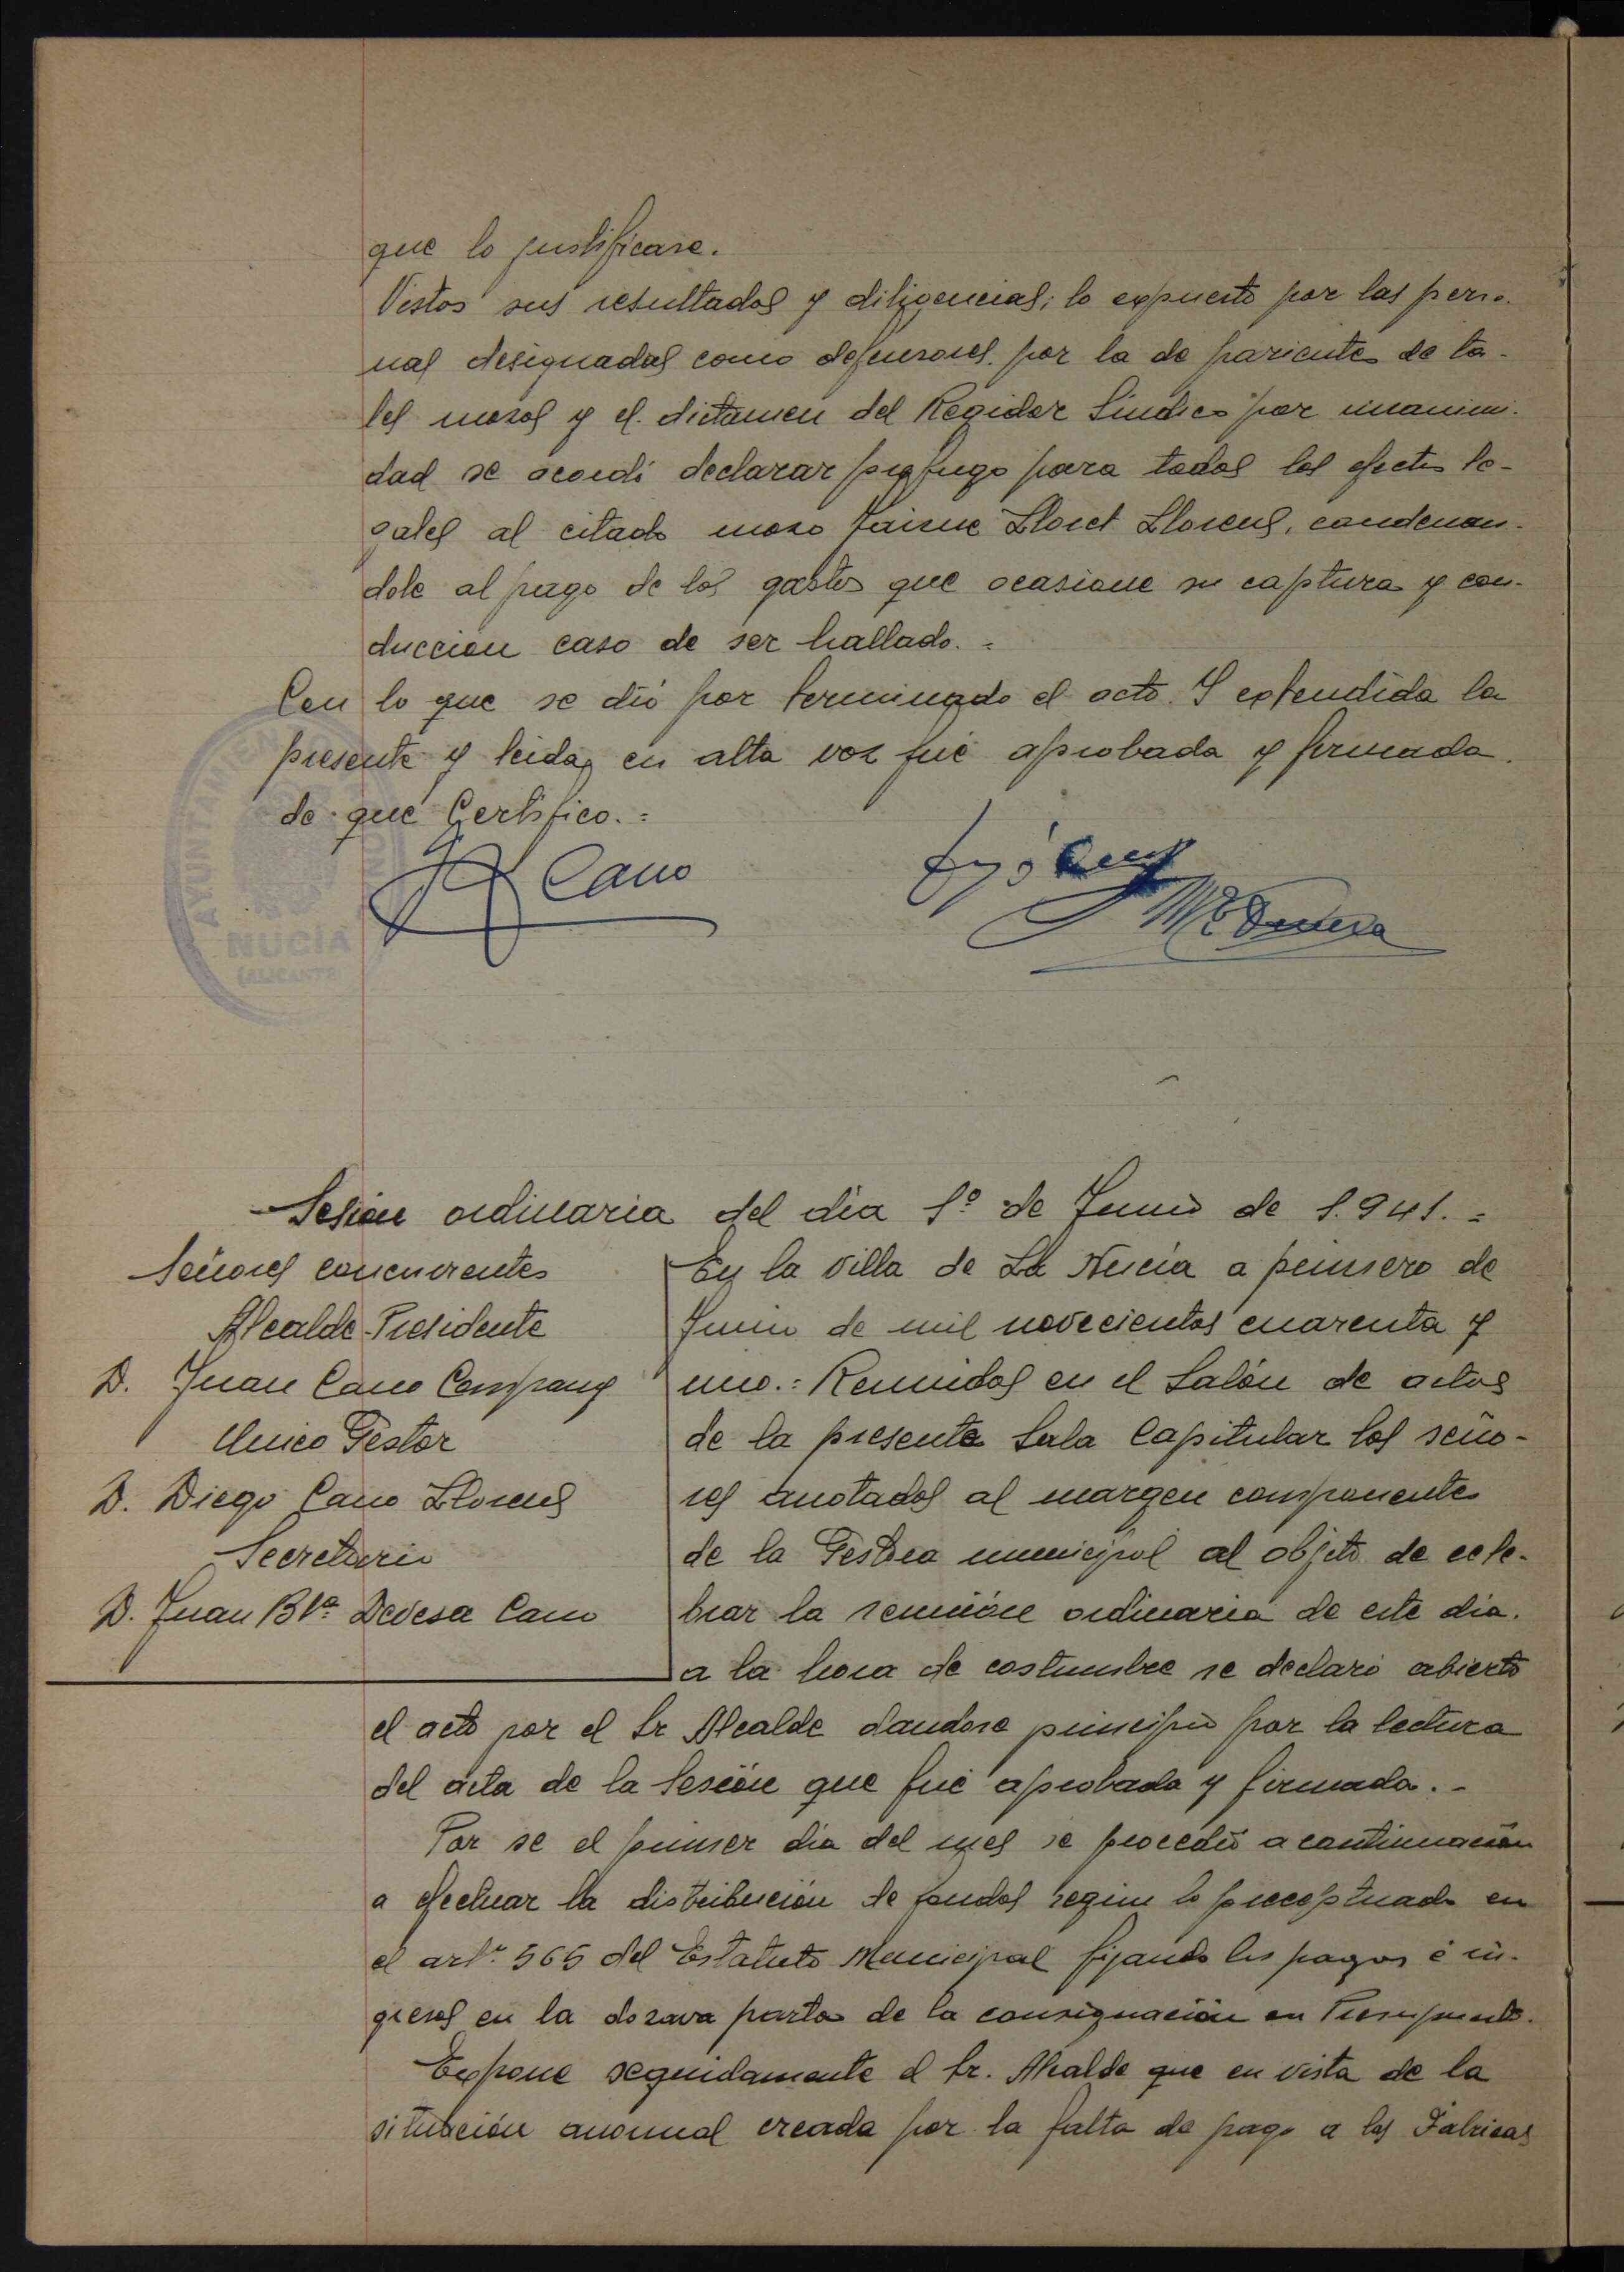 que lo justificase.
Vistos sus resultados y diligencias; lo expuesto por las perso-
nas designadas como defensores por la de parientes de ta-
les mozos y el dictamen del Regidor Síndico por unanimi-
dad se acordó declarar profugo para todos los efectos le-
gales al citado mozo Jaime Lloret Llorens, condenan-
dole al pago de los gastos que ocasione su captura y con-
ducción caso de ser hallado.=
Con lo que se dió por terminado el acto. Y extendida la
presente y leida en alta voz fué aprobada y firmada
de que Certifico.=
Cano
AYUNTAMIENTO
NUCIA
(ALICANTE)
Sesión ordinaria del día 1º de Junio de 1.941.=
Señores concurrentes
Alcalde-Presidente
D. Juan Cano Company
Unico Gestor
D. Diego Cano Llorens
Secretario
D. Juan Bta Devesa Cano
En la villa de La Nucia a primero de
Junio de mil novecientos cuarenta y
uno.= Reunidos en el Salón de actos
de la presente Sala Capitular los seño-
res anotados al margen componentes
de la Gestora municipal al objeto de cele-
brar la reunión ordinaria de este día.
a la hora de costumbre se declaró abierto
el acto por el Sr Alcalde dandose principio por la lectura
del acta de la Sesión que fué aprobada y firmada.-
Por se el primer día del mes se procedió a continuación
a efectuar la distribución de fondos según lo preceptuado en
el artº 565 del Estatuto Municipal fijando los pagos é in-
gresos en la dozava parte de la consignación en Presupuesto.
Expone seguidamente el Sr. Alcalde que en vista de la
situación anormal creada por la falta de pago a las Fabricas